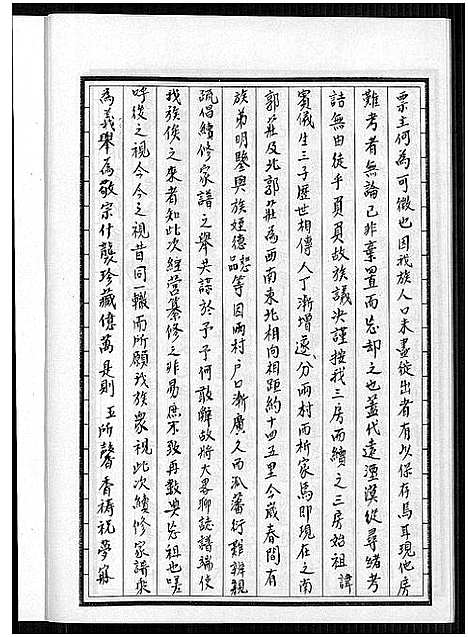 票主何為可徵也因我族人口未盡徙出者有以保存焉耳現他房
難考者無論已非棄置而忘卻之也蓋代遠湮漠從尋緒考
詰無由徒乎頁頁故族議決謹按我三房而續之三房始祖諱
賓儀生三子歷世相傳人丁漸增遂分兩村而析家焉即現在之南
郭莊及北郭莊為西南東北相向相距約十四五里今歲春間有
族弟明鑒與族姪德恕品等因兩村户口漸廣久而瓜蕃衍難辨親
疏倡續修家譜之舉共諒於予予何敢辭故將大畧聊誌譜端使
我族後之來者知此次經營纂修之非易庶不致再數典忘祖也嗟
呼後之視今今之視昔同一轍而所願我族眾視此次續修家譜來
為義舉為敬宗什襲珍藏億萬是則 玉所馨香禱祝夢寐